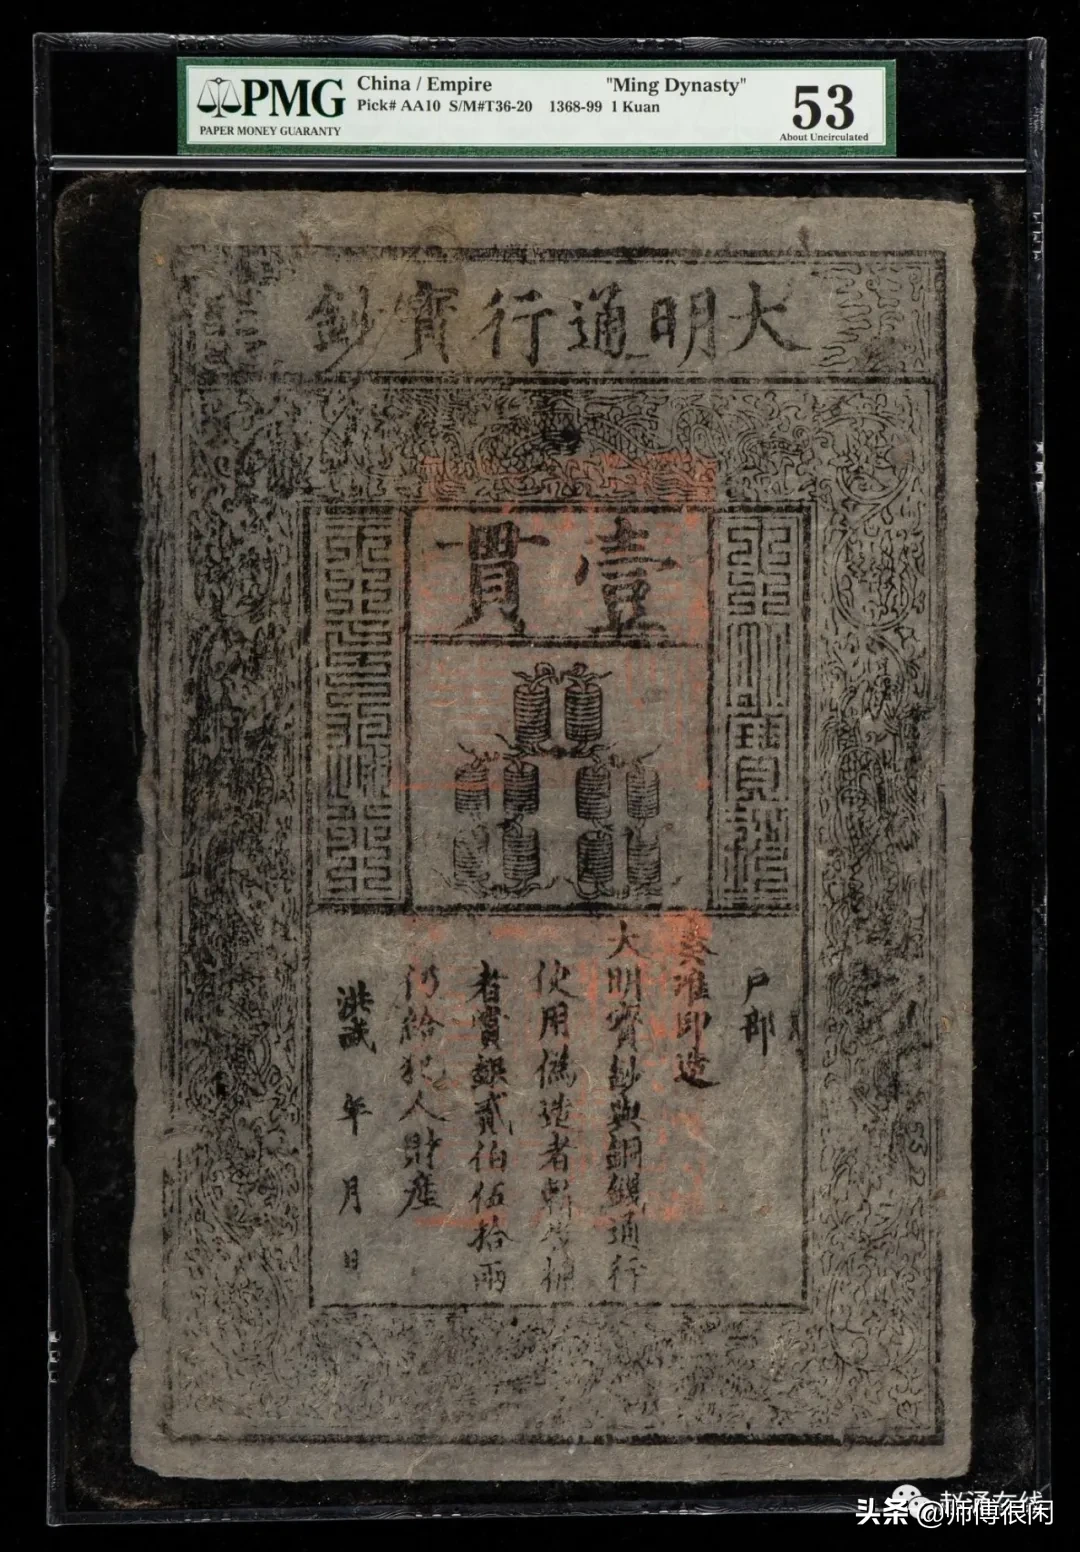 PMG
PAPER MONEY GUARANTY
China / Empire "Ming Dynasty"
Pick# AA10 S/M#T36-20 1368-99 1 Kuan
53
About Uncirculated
大明通行寶鈔
壹貫
戶部
奏准印造
大明寶鈔與銅錢通行
使用偽造者斬告捕
者賞銀貳伯伍拾兩
仍給犯人財產
洪武 年 月 日
头条 @师傅很闲